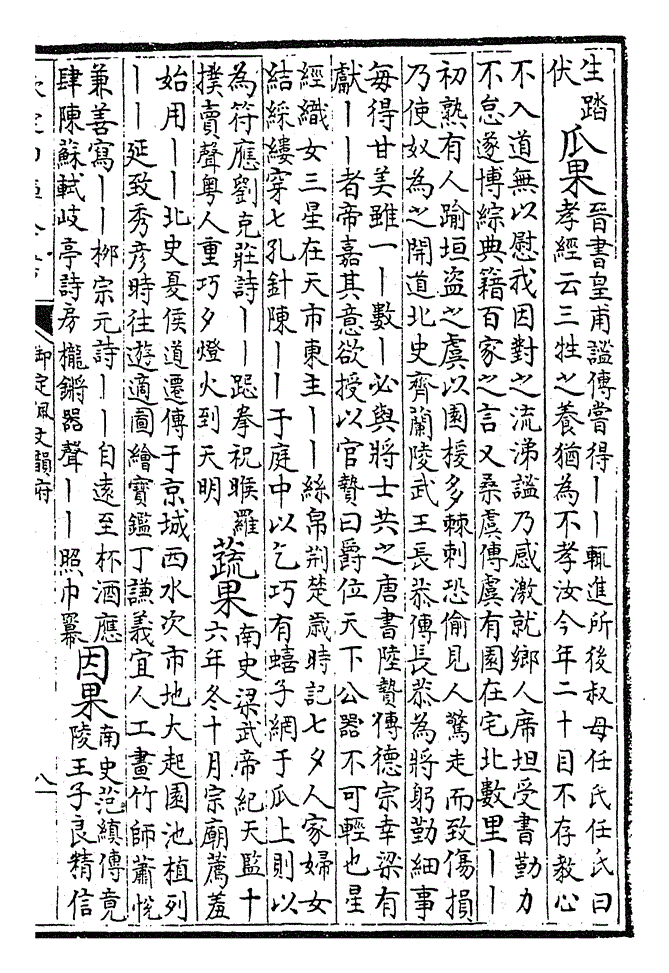 生踏
伏
瓜果
晉書皇甫謐傳嘗得丨丨輒進所後叔母任氏任氏曰
孝經云三牲之養猶為不孝汝今年二十目不存教心
不入道無以慰我因對之流涕謐乃感激就鄉人席坦受書勤力
不怠遂博綜典籍百家之言又桑虞傳虞有園在宅北數里丨丨
初熟有人踰垣盜之虞以園援多棘刺恐偷見人驚走而致傷損
乃使奴為之開道北史齊蘭陵武王長恭傳長恭為將躬勤細事
每得甘美雖一丨數丨必與將士共之唐書陸贄傳德宗幸梁有
獻丨丨者帝嘉其意欲授以官贄曰爵位天下公器不可輕也星
經織女三星在天市東主丨丨絲帛荆楚歲時記七夕人家婦女
結綵縷穿七孔針陳丨丨于庭中以乞巧有蟢子網于瓜上則以
為符應劉克莊詩丨丨跽拳祝睺羅
撲賣聲粤人重巧夕燈火到天明
蔬果
南史梁武帝紀天監十
六年冬十月宗廟薦羞
始用丨丨北史夏侯道遷傳于京城西水次市地大起園池植列
丨丨延致秀彦時往遊適圖繪寶鑑丁謙義宜人工畫竹師蕭悦
兼善寫丨丨柳宗元詩丨丨自遠至杯酒應
肆陳蘇軾岐亭詩房櫳鏘器聲丨丨照巾羃
因果
南史范縝傳竟
陵王子良精信
御定佩文韻府
八